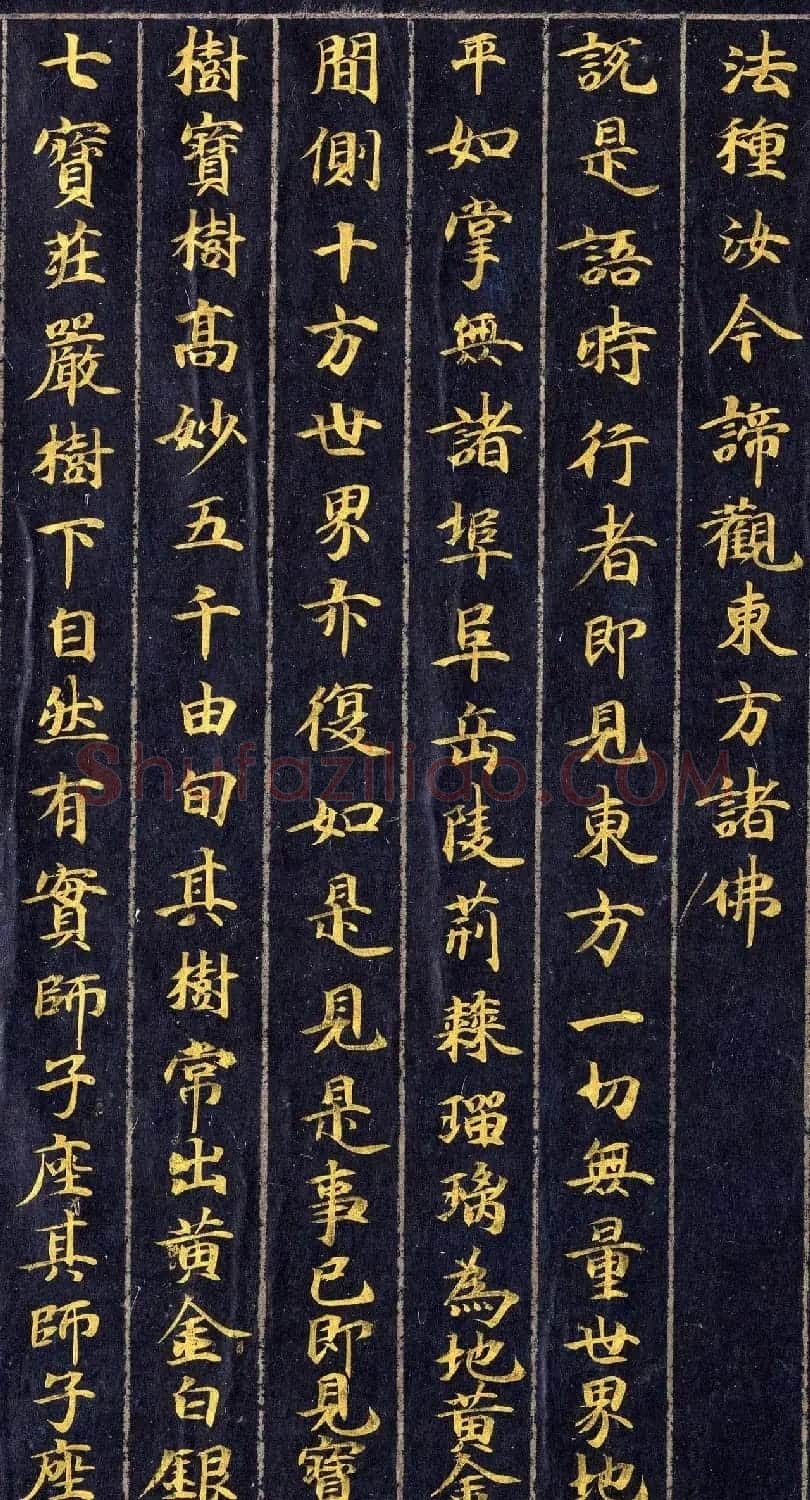 法種汝今諦觀東方諸佛
説是語時行者即見東方一切無量世界地
平如掌無諸埠阜岳陵荊棘瑠璃為地黃金
間側十方世界亦復如是見是事已即見寶
樹寶樹髙妙五千由旬其樹常出黃金白銀
七寶莊嚴樹下自然有實師子座其師子座
Shufaziliao.COM